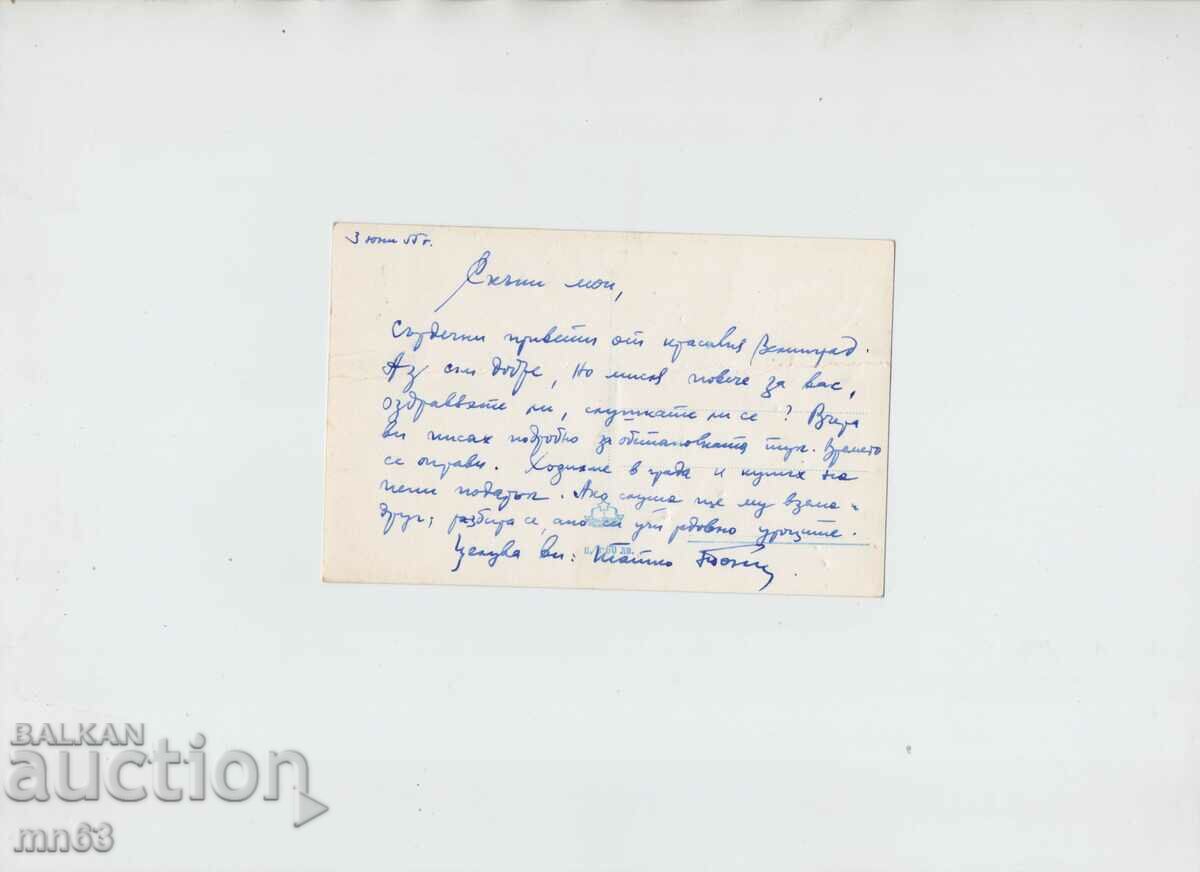 3 юни 55 г.
Скъпи мои,
Сърдечни привети от красивия Велинград.
Аз съм добре, но мисля повече за вас,
оздравяхте ли, слушкате ли се? Вчера
ви писах подробно за обстановката тук. Времето
се оправи. Ходихме в града и купих на
подарък. Ако слуша ще му взема
друг; разбира се, ако си учи редовно уроците.
ц. 0·60 лв.
Целува ви: Татко
BALKAN
auction
мn63